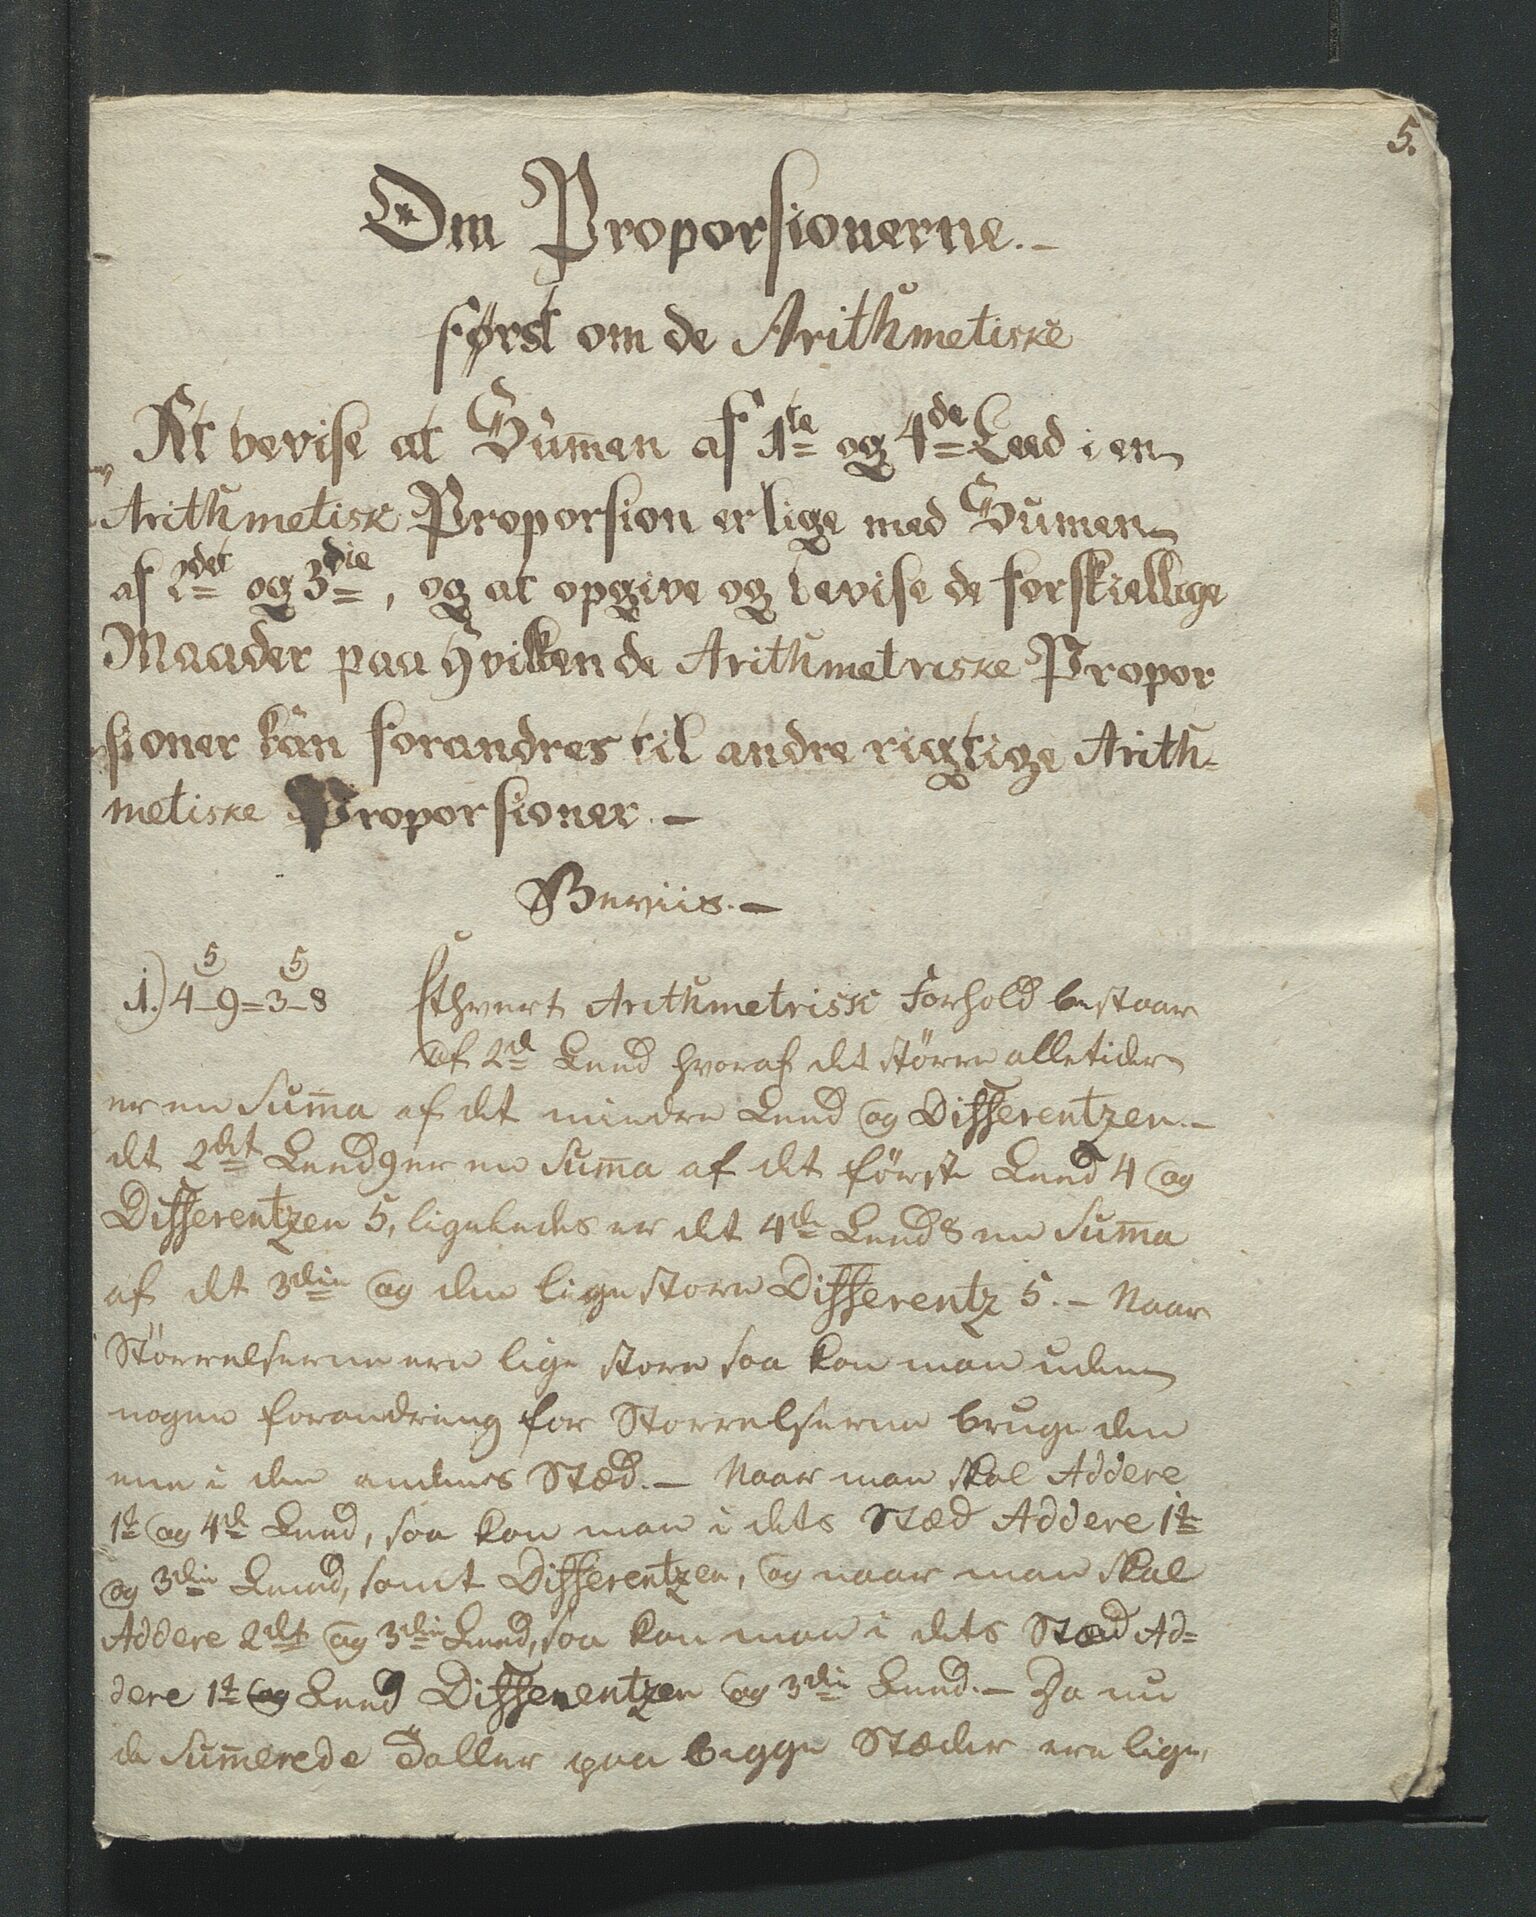 5.
Om Proporsionerne. –
først om de Arithmetiske
At bevise at Sum̄en af 1te og 4de Leed i en
Arithmetisk Proporsion er lige med Sumen
af 2det og 3die, og at opgive og bevise de forskiellige
Maader paa hvilken de Arithmetriske Propor
sioner kan forandres til andre rigtige Arith-
metiske Proporsioner. –
Beviis. –
5 5
1.) 4–9=3–8 Ethvert Arithmetrisk Forhold bestaar
af 2de Leed hvoraf det större alletider
er en Sum̄a af det mindre Leed og Differentzen. –
det 2det Leed 9 er en Sum̄a af det förste Leed 4 og
Differentzen 5, ligeledes er det 4de Leed 8 en Sum̄a
af det 3die og den lige store Differentz 5. – Naar
Störrelserne ere lige store saa kan man uden
nogen forandring for Storrelserne bruge den
ene i den andens Stæd. – Naar man skal Addere
1te og 4de Leed, saa kan man i dets Stæd Addere 1te
og 3die Leed, samt Differentzen, og naar man skal
Addere 2det og 3die Leed, saa kan man i dets Stæd Ad=
dere 1te og Leed Differentzen og 3die Leed. – Da nu
de Sum̄erede Taller paa begge Stæder ere lige,